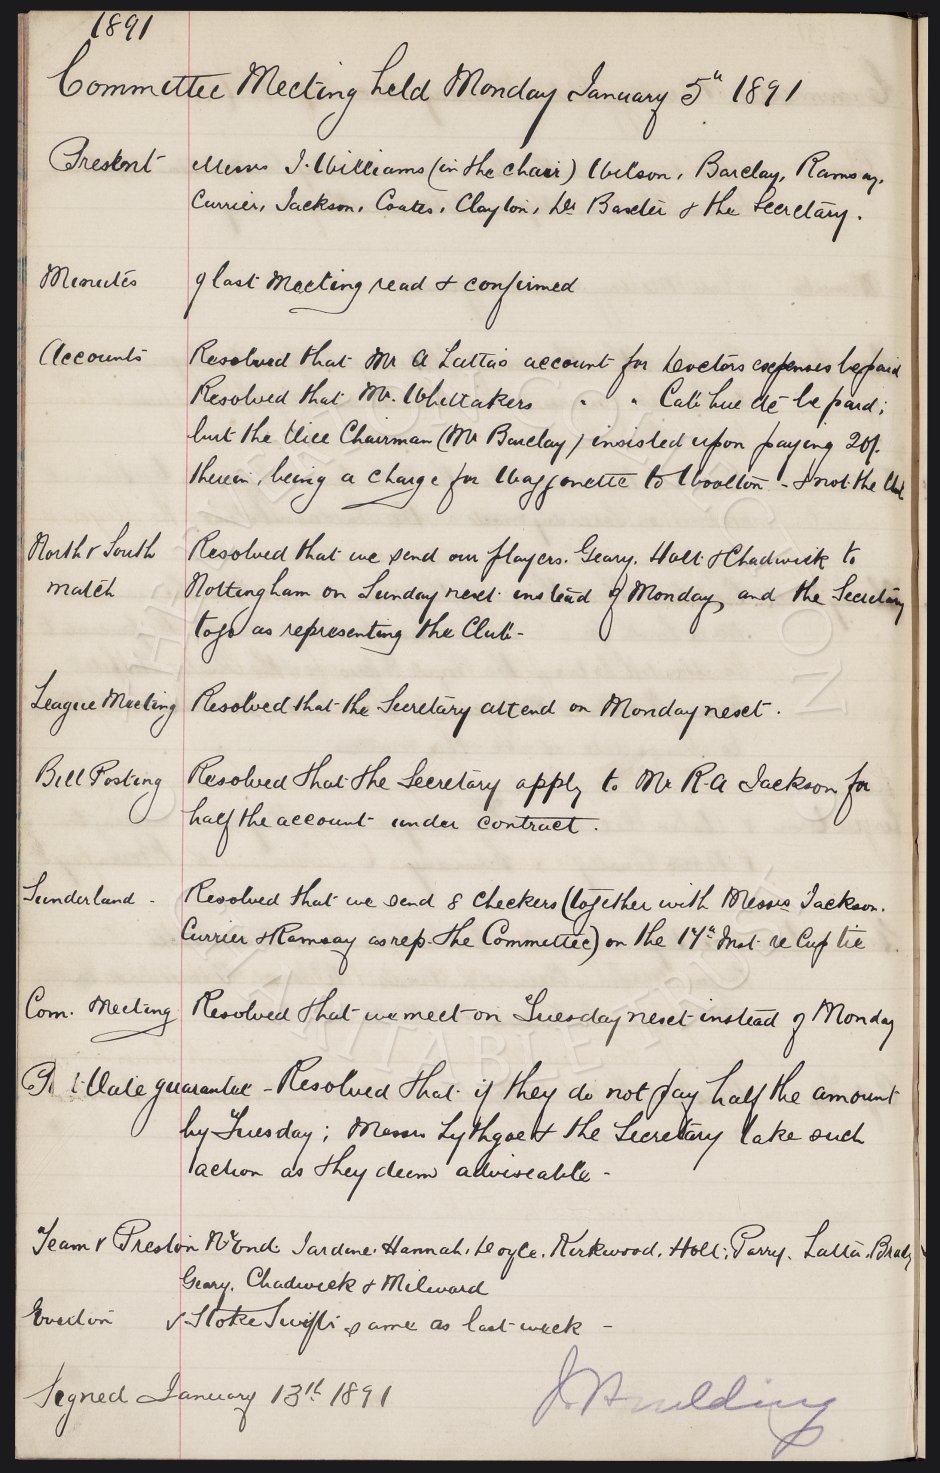 1891
Committee Meeting held Monday January 5th 1891
Present Messrs J. Williams (in the chair) Wilson, Barclay, Ramsay,
Currier, Jackson, Coates, Clayton, Dr Baxter & the Secretary.
Minutes of last Meeting read & confirmed
Accounts Resolved that Mr A Latta's account for Doctors expenses be paid
Resolved that Mr. Whittakers " " Cab hire etc be paid;
but the Vice Chairman (Mr Barclay) insisted upon paying 20/-
therein, being a charge for Waggonette to Woolton - & not the Club
North v South Resolved that we send our players. Geary, Holt & Chadwick to
match Nottingham on Sunday next instead of Monday, and the Secretary
to go as representing the Club -
League Meeting Resolved that the Secretary attend on Monday next.
Bill Posting Resolved that the Secretary apply to Mr R. A Jackson for
half the account under contract.
Sunderland - Resolved that we send 8 checkers (together with Messrs Jackson.
Currier & Ramsay as rep. the Committee) on the 17th Inst re Cup tie
Com. Meeting Resolved that we meet on Tuesday next instead of Monday
Vale guarantee - Resolved that if they do not pay half the amount
by Tuesday; Messrs Lythgoe & the Secretary take such
action as they deem adviseable -
Team v Preston N. End. Jardine. Hannah, Doyle, Kirkwood, Holt, Parry, Latta, Brady
Geary, Chadwick & Milward
Everton v Stoke Swifts same as last week -
Signed January 13th 1891
CHARITABLE TRUST